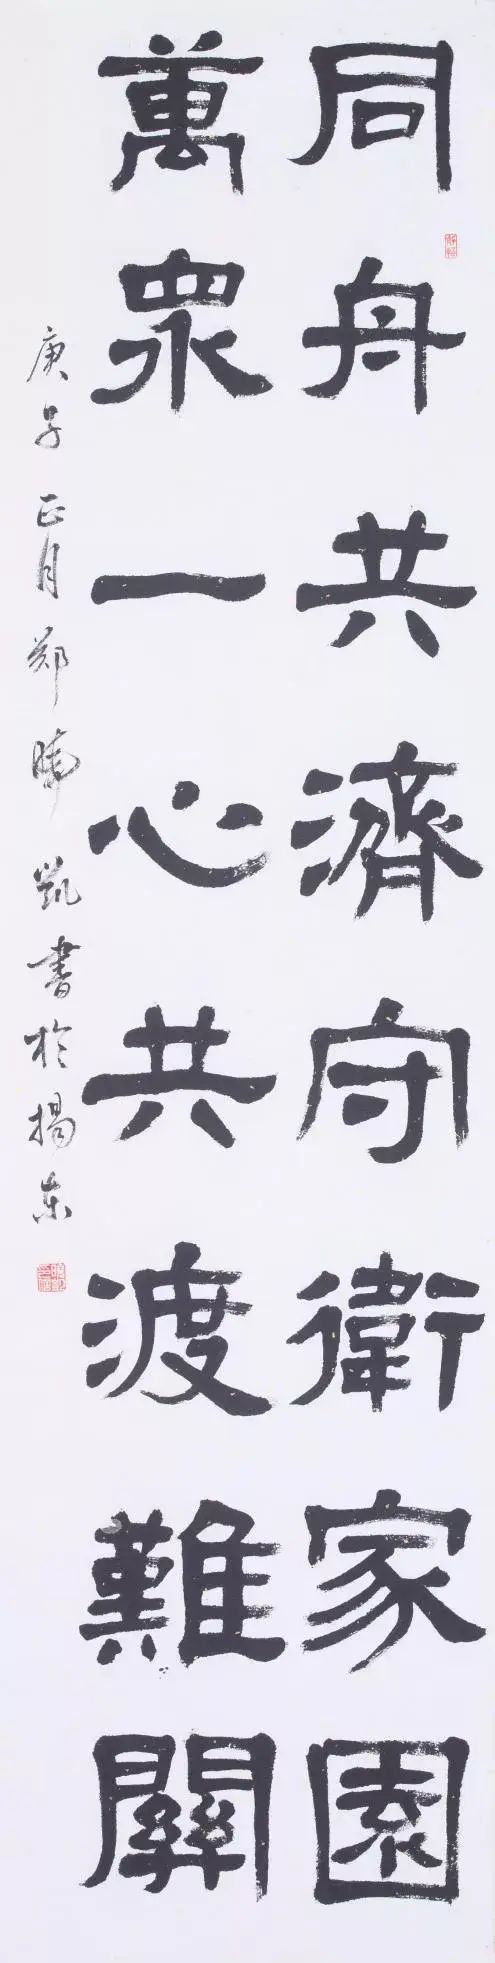 同舟共濟守衛家園
萬眾一心共渡難關
庚子正月郑晞凱書於揭東